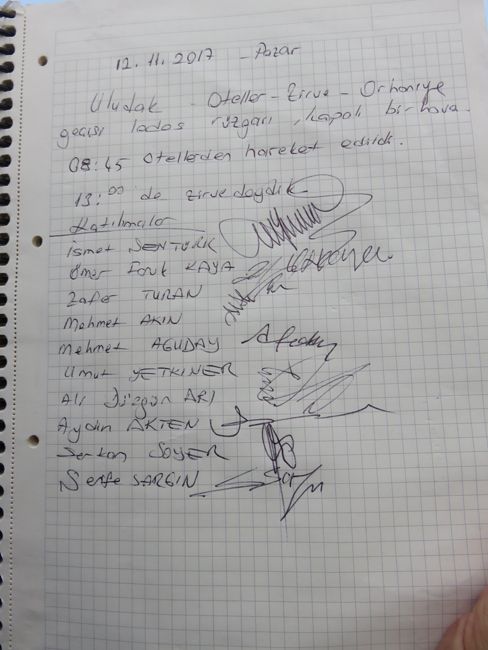 12.11.2017 - Pazar
Uludak - Oteller - Zirve - Orhaniye
geçişi lodos rüzgarı, kapalı bir hava.
08:45 otellerden hareket edildi.
13:00 de zirvedeydik
Katılımcılar
İsmet ŞENTÜRK
Ömer Faruk KAYA
Zafer TURAN
Mehmet AKIN
Mehmet AGUDAY
Umut YETKİNER
Ali Düzgün ARI
Aydın AKTEN
Serkan SOYER
SARGIN